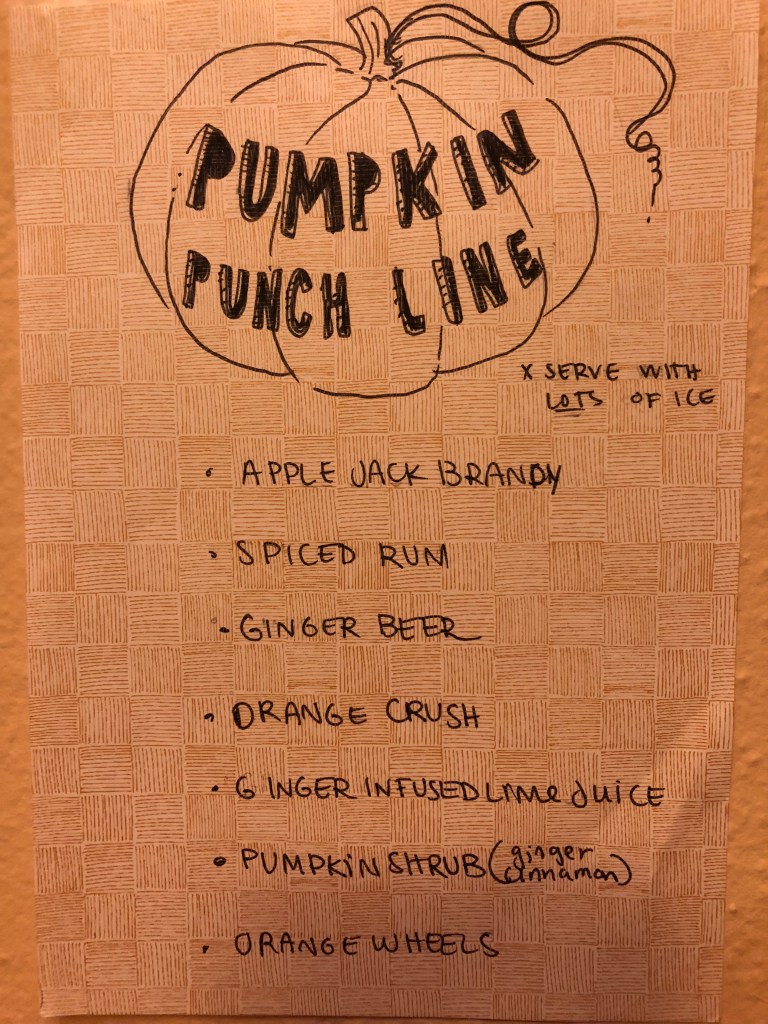 PUMPKIN
PUNCH LINE
x SERVE WITH
LOTS OF ICE
• APPLE JACK BRANDY
• SPICED RUM
• GINGER BEER
• ORANGE CRUSH
• GINGER INFUSED LIME JUICE
• PUMPKIN SHRUB (ginger
cinnamon)
• ORANGE WHEELS